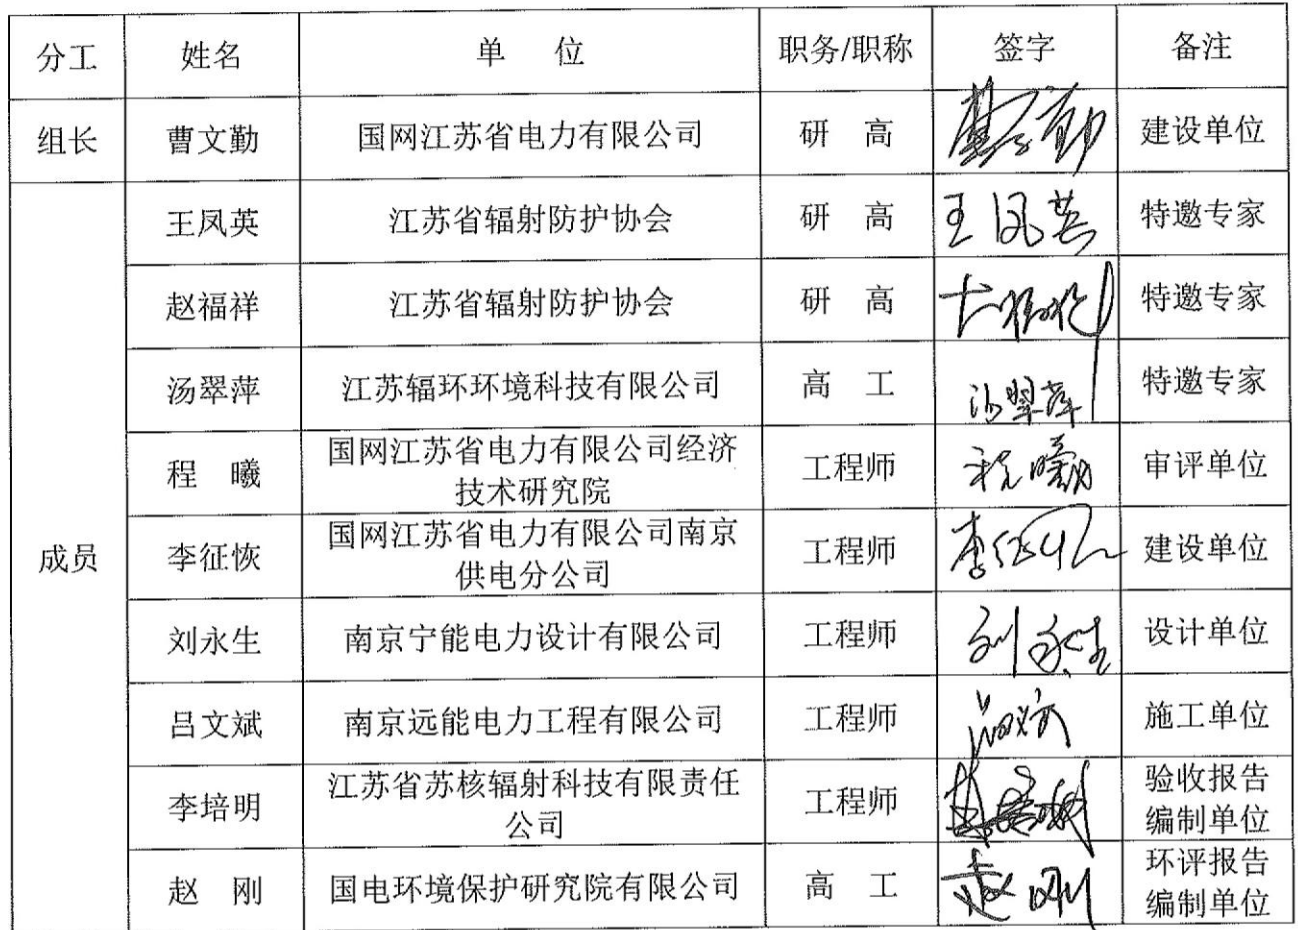 分工 姓名 单 位 职务/职称 签字 备注
组长 曹文勤 国网江苏省电力有限公司 研 高 曹文勤 建设单位
王凤英 江苏省辐射防护协会 研 高 王凤英 特邀专家
赵福祥 江苏省辐射防护协会 研 高 特邀专家
汤翠萍 江苏辐环环境科技有限公司 高 工 汤翠萍 特邀专家
国网江苏省电力有限公司经济
程 曦 工程师 程曦 审评单位
技术研究院
国网江苏省电力有限公司南京
成员 李征恢 工程师 李征恢 建设单位
供电分公司
刘永生 南京宁能电力设计有限公司 工程师 刘永生 设计单位
吕文斌 南京远能电力工程有限公司 工程师 吕文斌 施工单位
江苏省苏核辐射科技有限责任 验收报告
李培明 工程师
公司 编制单位
环评报告
赵 刚 国电环境保护研究院有限公司 高 工 赵刚
编制单位